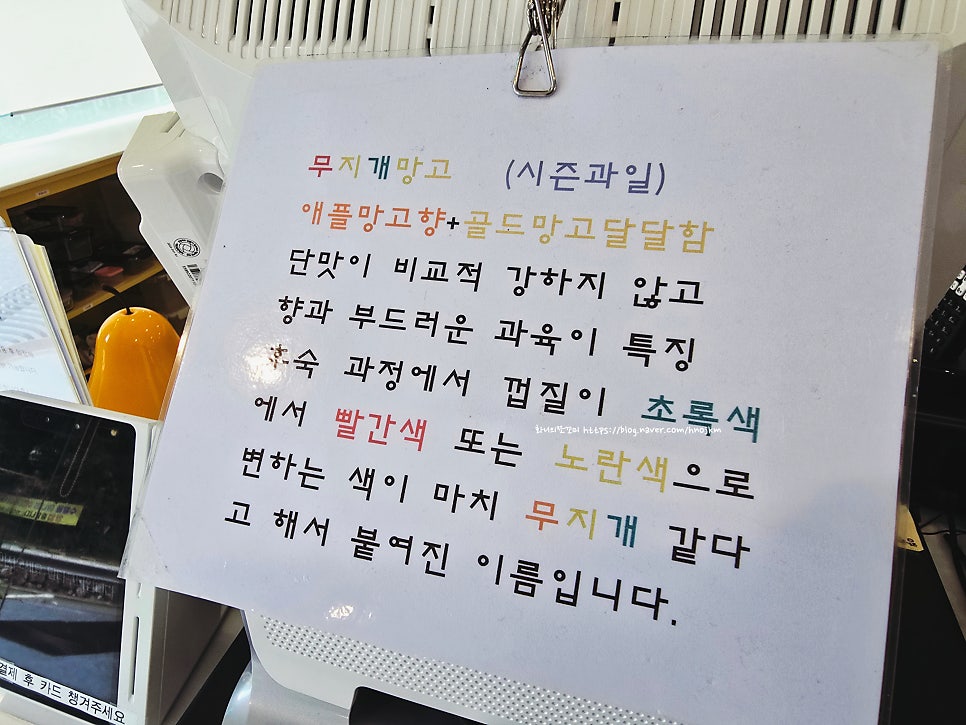 무지개망고 (시즌과일)
애플망고향+골드망고달달함
단맛이 비교적 강하지 않고
향과 부드러운 과육이 특징
후숙 과정에서 껍질이 초록색
에서 빨간색 또는 노란색으로
변하는 색이 마치 무지개 같다
고 해서 붙여진 이름입니다.
https://blog.naver.com/hnojkm
결제 후 카드 챙겨주세요